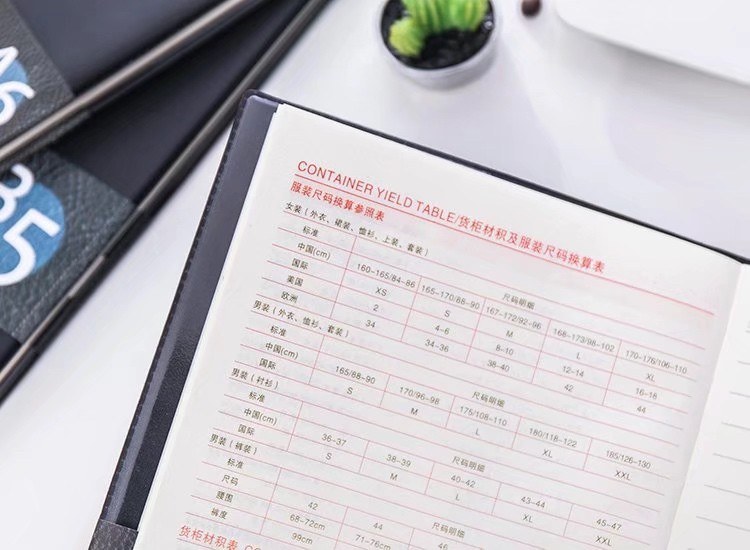 A6
35
CONTAINER YIELD TABLE/货柜材积及服装尺码换算表
服装尺码换算参照表
女装(外衣、裙装、恤衫、上装、套装)
标准 尺码明细
中国(cm) 160-165/84-86 165-170/88-90 167-172/92-96 168-173/98-102 170-176/106-110
国际 XS S M L XL
美国 2 4-6 8-10 12-14 16-18
欧洲 34 34-36 38-40 42 44
男装(外衣、恤衫、套装)
标准 尺码明细
中国(cm) 165/88-90 170/96-98 175/108-110 180/118-122 185/126-130
国际 S M L XL XXL
男装(衬衫)
标准 尺码明细
中国(cm) 36-37 38-39 40-42 43-44 45-47
国际 S M L XL XXL
男装(裤装)
标准 尺码明细
尺码 42 44 46
腰围 68-72cm 71-76cm
裤度 99cm
货柜材积表